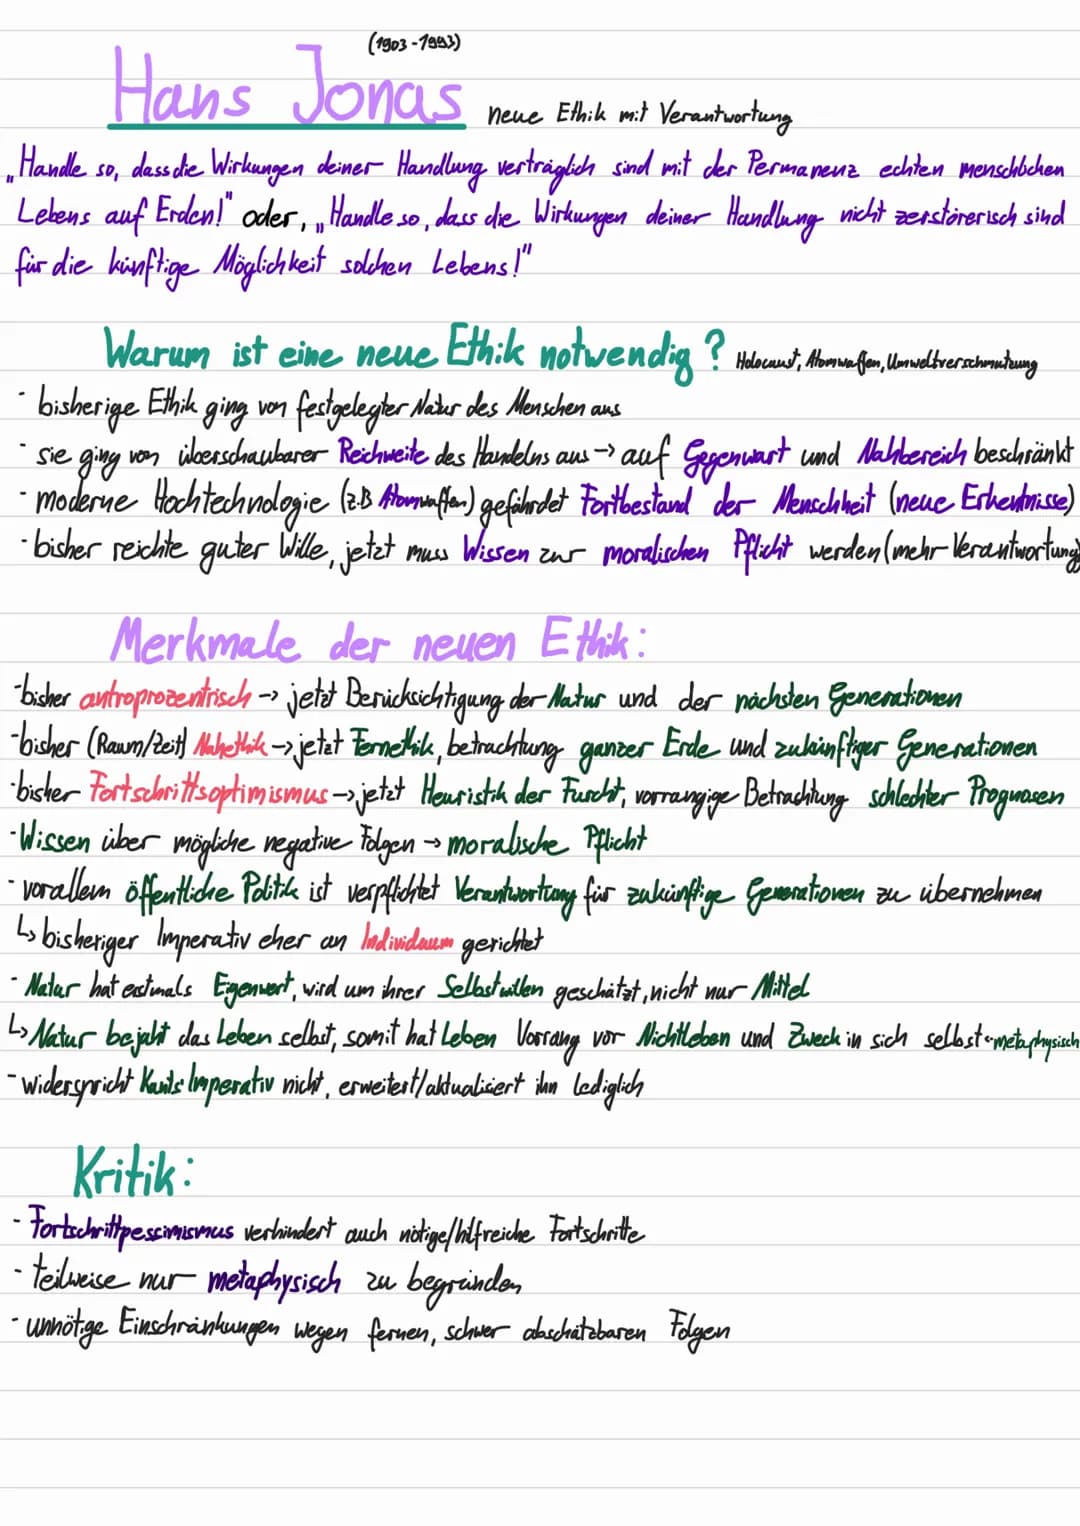 (1903-1993)
Hans Jonas neue Ethik mit Verantwortung
„Handle so, dass die Wirkungen deiner Handlung verträglich sind mit der Permanenz echten menschlichen
Lebens auf Erden!" oder, „Handle so, dass die Wirkungen deiner Handlung nicht zerstörerisch sind
für die künftige Möglichkeit solchen Lebens!"
Warum ist eine neue Ethik notwendig? Holocaust, Atomwaffen, Umweltverschmutzung
- bisherige Ethik ging von festgelegter Natur des Menschen aus
- sie ging von überschaubarer Reichweite des Handelns aus -> auf Gegenwart und Nahbereich beschränkt
- moderne Hochtechnologie (z.B Atomwaffen) gefährdet Fortbestand der Menschheit (neue Erkentnisse)
- bisher reichte guter Wille, jetzt muss Wissen zur moralischen Pflicht werden (mehr Verantwortung)
Merkmale der neuen Ethik:
-bisher antroprozentrisch -> jetzt Berücksichtigung der Natur und der nächsten Generationen
-bisher (Raum/Zeit) Nahethik -> jetzt Fernethik, betrachtung ganzer Erde und zukünftiger Generationen
-bisher Fortschrittsoptimismus -> jetzt Heuristik der Furcht, vorrangige Betrachtung schlechter Prognosen
-Wissen über mögliche negative Folgen -> moralische Pflicht
- vorallem öffentliche Politik ist verpflichtet Verantwortung für zukünftige Generationen zu übernehmen
↳ bisheriger Imperativ eher an Individuum gerichtet
- Natur hat erstmals Eigenwert, wird um ihrer Selbstwillen geschätzt, nicht nur Mittel
↳ Natur bejaht das Leben selbst, somit hat Leben Vorrang vor Nichtleben und Zweck in sich selbst <- metaphysisch
- widerspricht Kants Imperativ nicht, erweitert/aktualisiert ihn lediglich
Kritik:
- Fortschrittpessimismus verhindert auch nötige/hilfreiche Fortschritte
- teilweise nur metaphysisch zu begründen
- unnötige Einschränkungen wegen fernen, schwer abschätzbaren Folgen